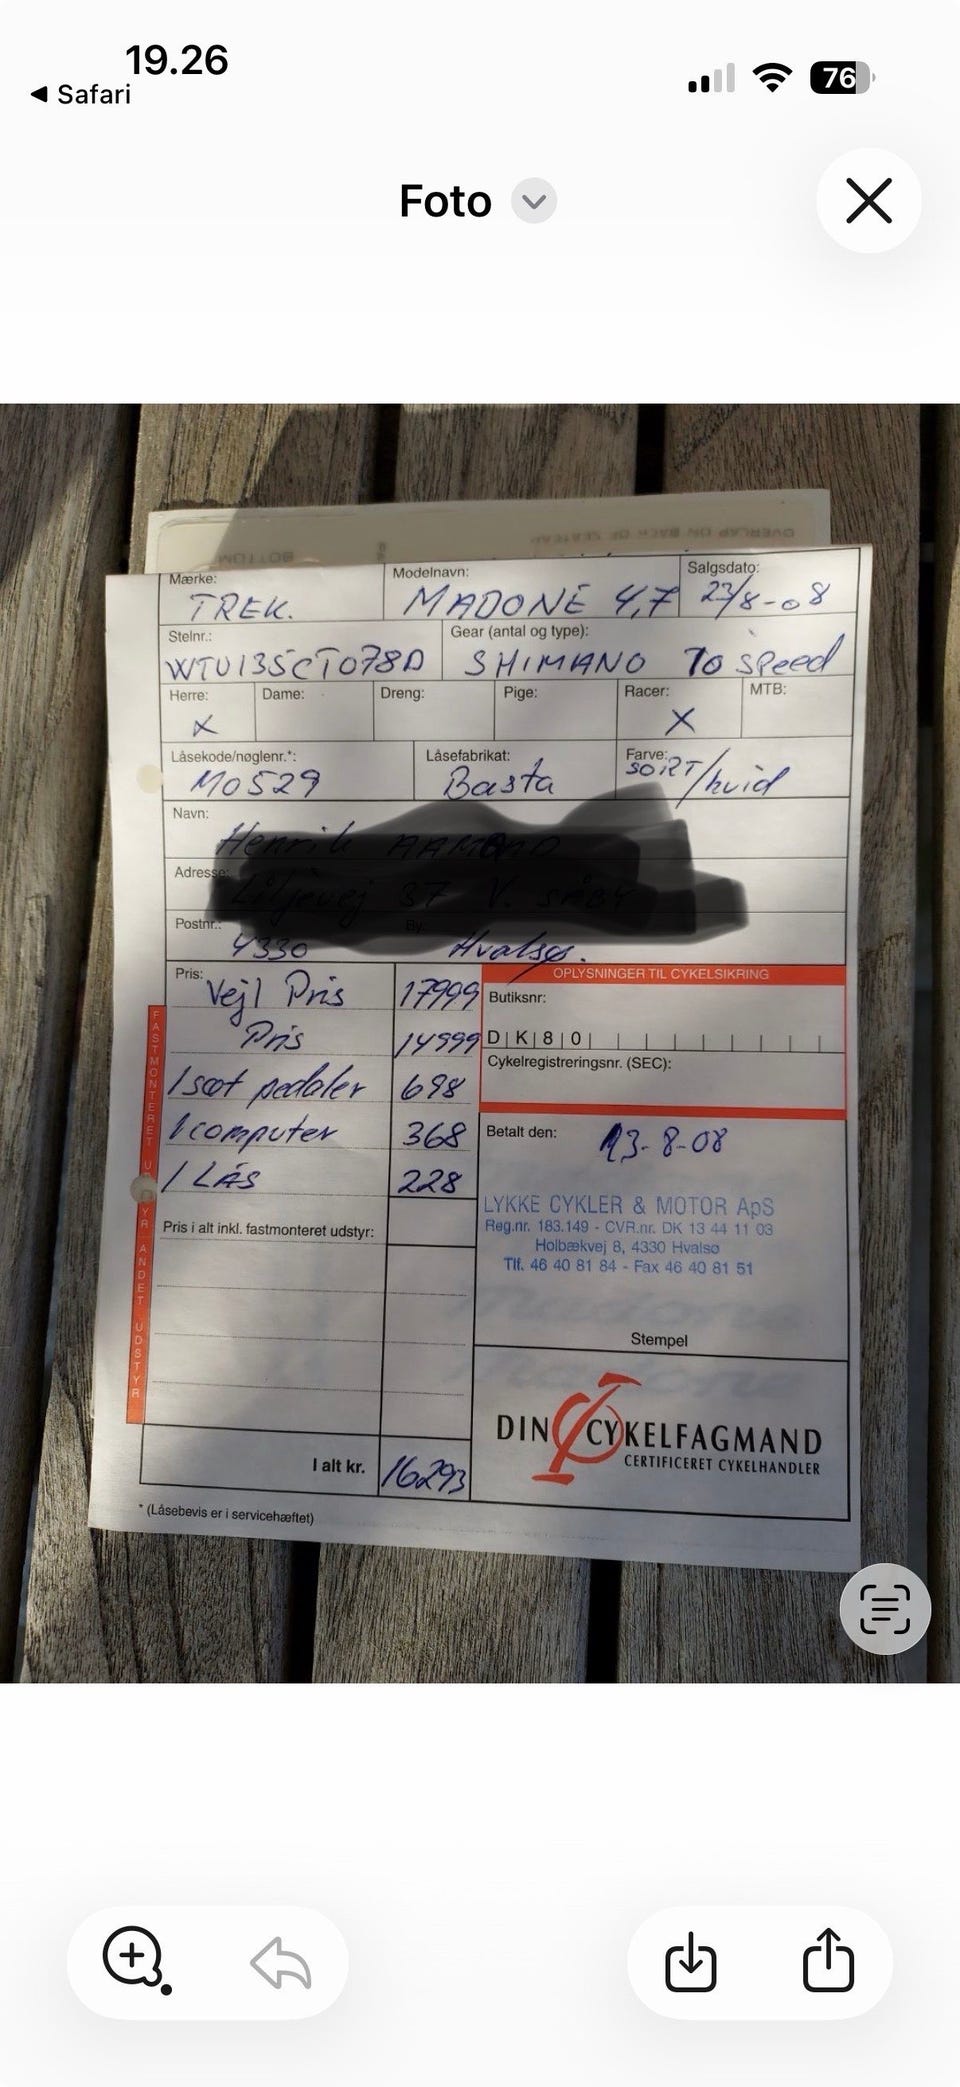 19.26
76
◀ Safari
Foto
BOTTOM
OVERLAP ON BACK OF
Mærke: Modelnavn: Salgsdato:
TREK. MADONE 4,7 23/8-08
Stelnr.: Gear (antal og type):
WTU135CT078D SHIMANO 10 speed
Herre: Dame: Dreng: Pige: Racer: MTB:
X X
Låsekode/nøglenr.*: Låsefabrikat: Farve:
M0529 Basta SORT/hvid
Navn:
Adresse:
Postnr.: By:
4330 Hvalsø.
Pris: Vejl Pris 17999
Pris 14999
1 sæt pedaler 698
1 computer 368
1 LÅS 228
Pris i alt inkl. fastmonteret udstyr:
I alt kr. 16293
* (Låsebevis er i servicehæftet)
OPLYSNINGER TIL CYKELSIKRING
Butiksnr:
DK80
Cykelregistreringsnr. (SEC):
Betalt den: 23-8-08
LYKKE CYKLER & MOTOR ApS
Reg.nr. 183.149 - CVR.nr. DK 13 44 11 03
Holbækvej 8, 4330 Hvalsø
Tlf. 46 40 81 84 - Fax 46 40 81 51
Stempel
DIN CYKELFAGMAND
CERTIFICERET CYKELHANDLER